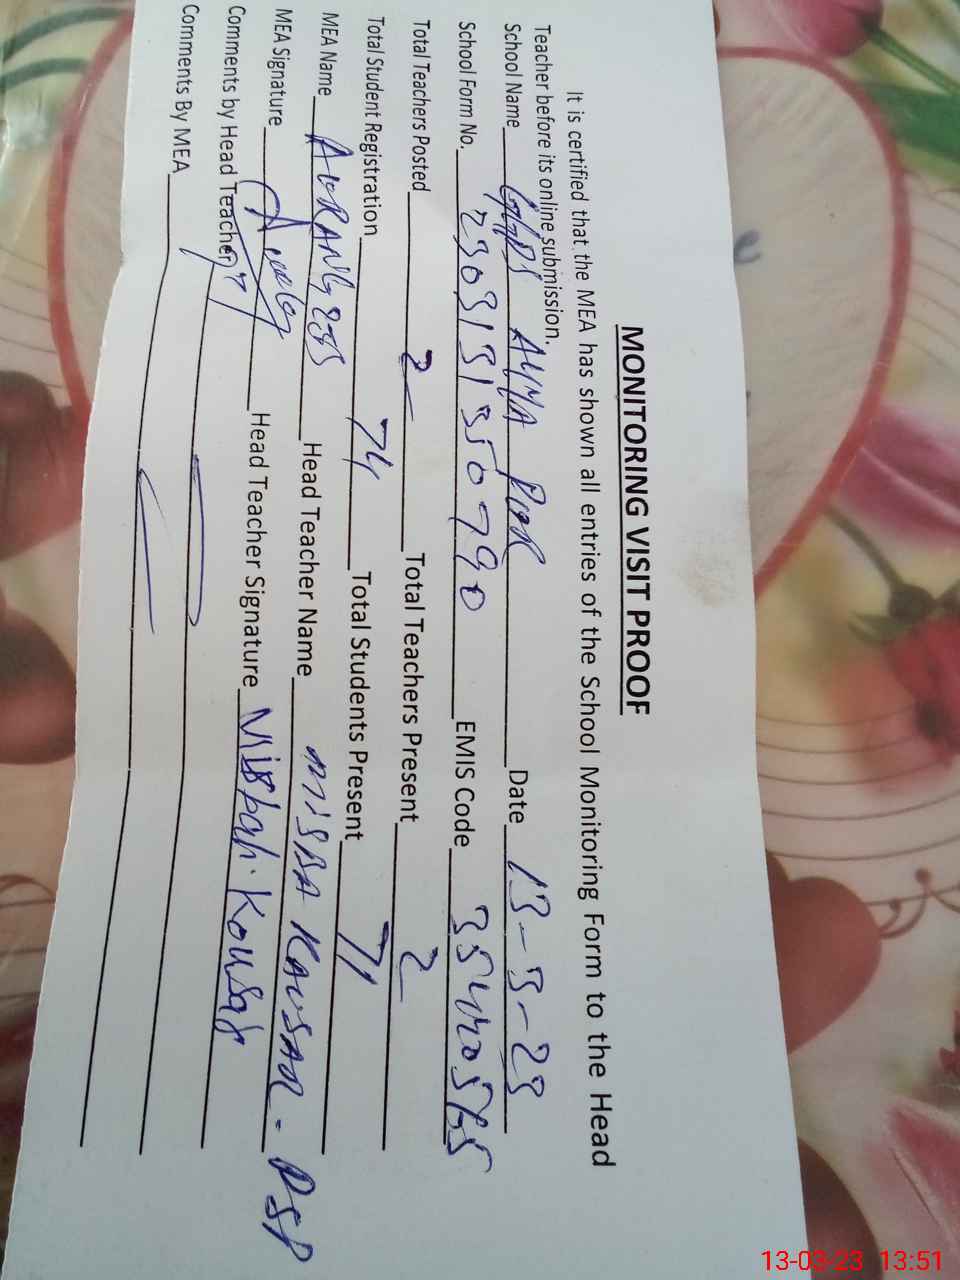 MONITORING VISIT PROOF
It is certified that the MEA has shown all entries of the School Monitoring Form to the Head
Teacher before its online submission.
School Name GGPS AYMA Date 13-3-23
School Form No. EMIS Code
Total Teachers Posted 2 Total Teachers Present 2
Total Student Registration 74 Total Students Present 71
MEA Name AURANGZEB Head Teacher Name MISBA KAUSAR - PST
MEA Signature Head Teacher Signature Misbah Kousar
Comments by Head Teacher
Comments By MEA
13-03-23 13:51